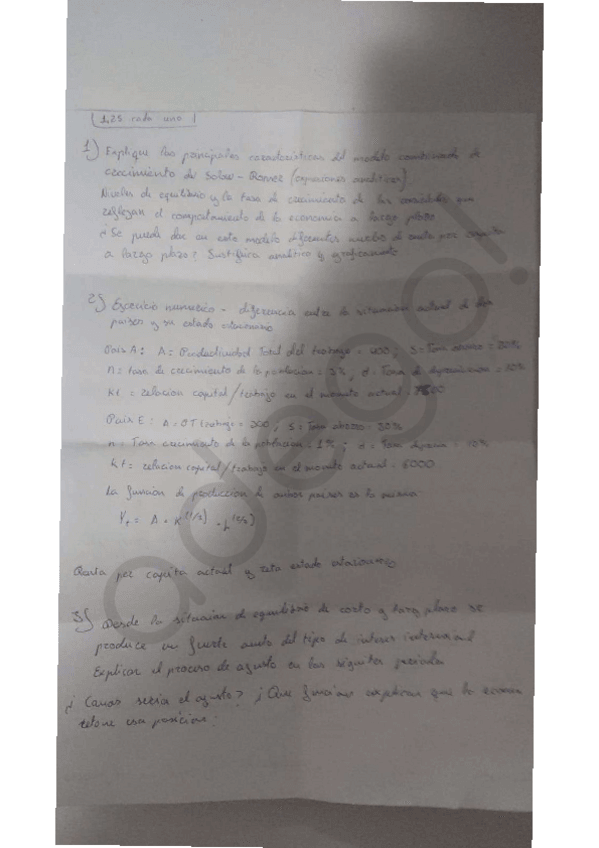 1,25 cada uno
1) Explique las principales características del modelo combinado de
crecimiento de Solow-Romer (expresiones analíticas)
Niveles de equilibrio y la tasa de crecimiento de las variables que
reflejan el comportamiento de la economía a largo plazo
¿Se puede dar en este modelo diferentes niveles de renta per capita
a largo plazo? Justifica analítica y gráficamente
2) Ejercicio numérico - diferencia entre la situación actual de dos
países y su estado estacionario
País A: A = Productividad Total del trabajo = 400; S = Tasa ahorro = 20%
n = tasa de crecimiento de la población = 3%, d = Tasa de depreciación = 10%
kt = relación capital/trabajo en el momento actual =
País E: A = trabajo = 200; S = Tasa ahorro = 30%
n = Tasa crecimiento de la población = 1% d = Tasa deprecia = 10%
kt = relación capital/trabajo en el momento actual = 6000
La función de producción de ambos países es la misma
Yt = A · K^(1/3) · L^(2/3)
Renta per capita actual y renta estado estacionario
3) Desde la situación de equilibrio de corto y largo plazo se
produce un fuerte aumento del tipo de interés internacional
Explicar el proceso de ajuste en los siguientes periodos
¿ sería el ajuste? ¿Que explican que la economía
retome esa posición?
adego!